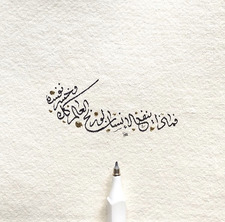 فماذا ينفع الإنسان لو ربح العالم كله
وخسر نفسه